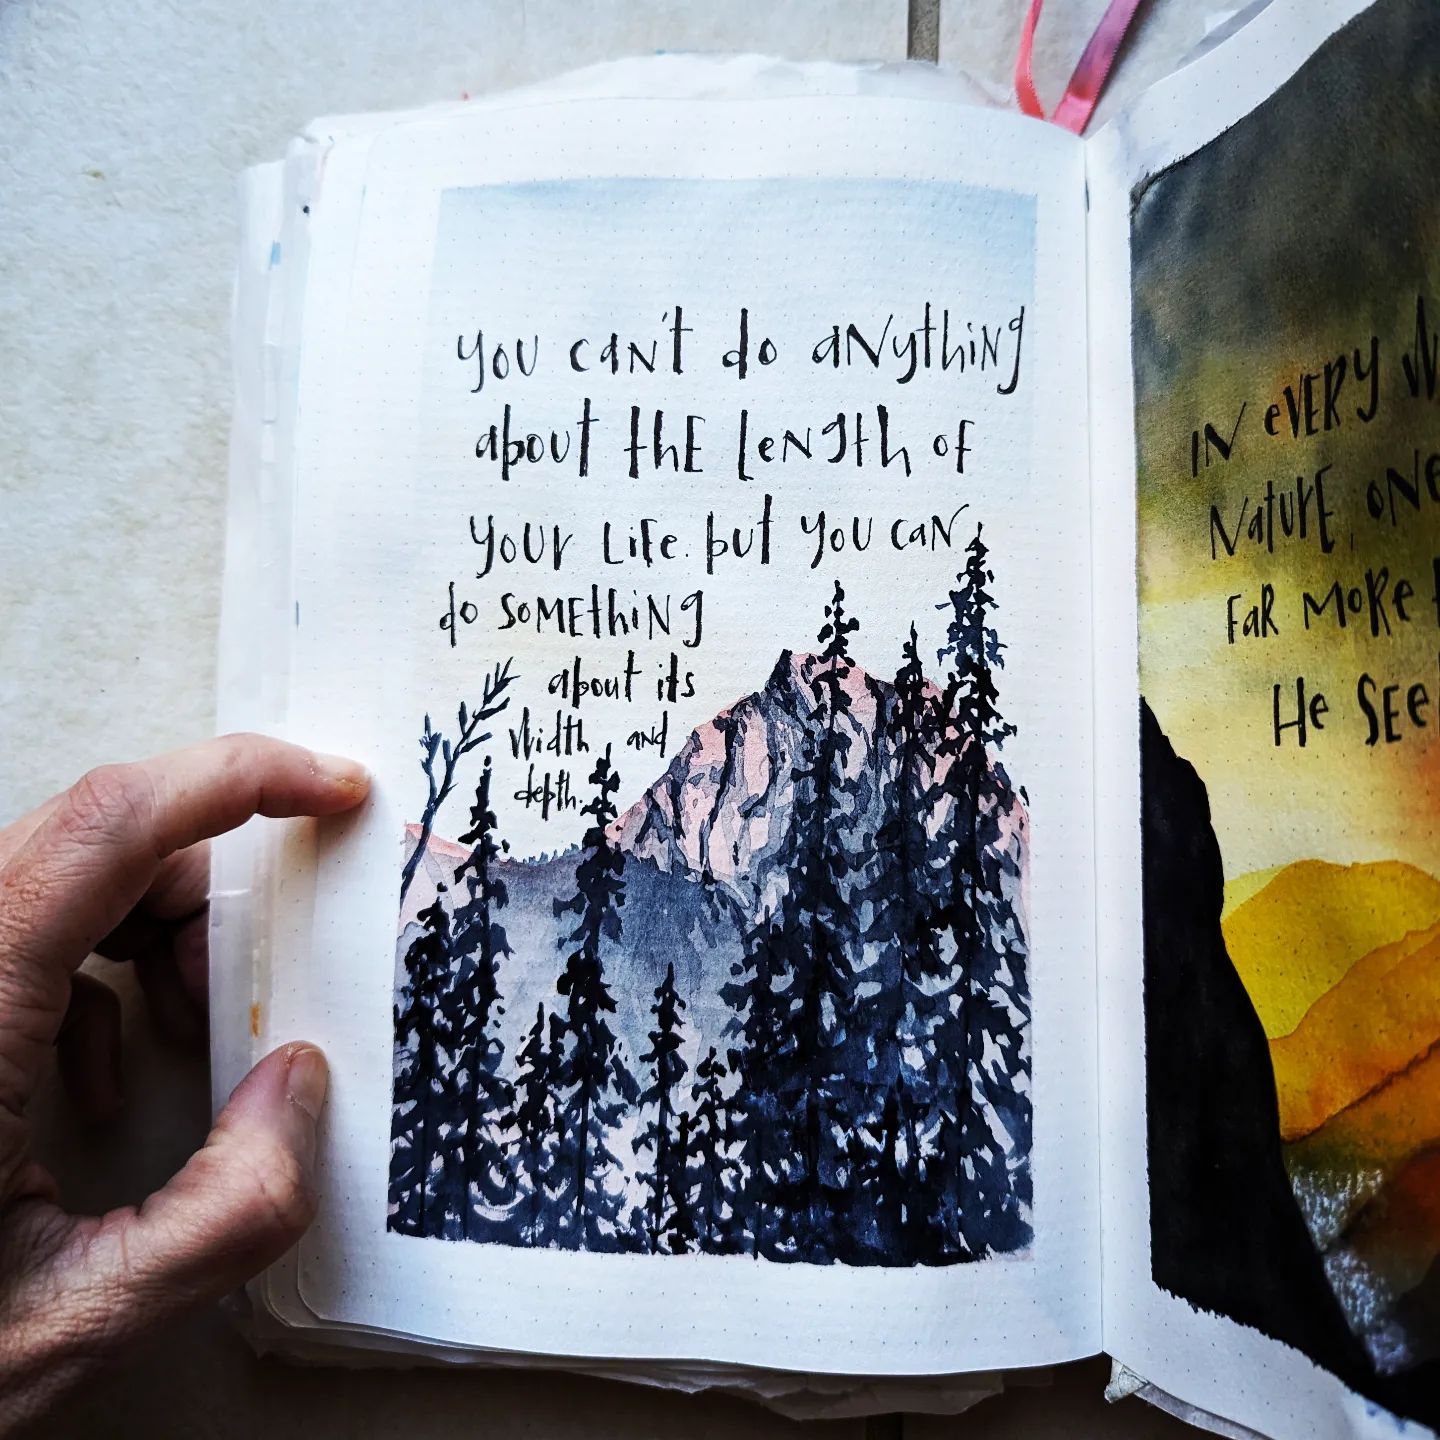 you can't do anything
about the length of
your life. but you can
do something
about its
width and
depth.
IN EVERY
NATURE, ONE
FAR MORE
HE SEE